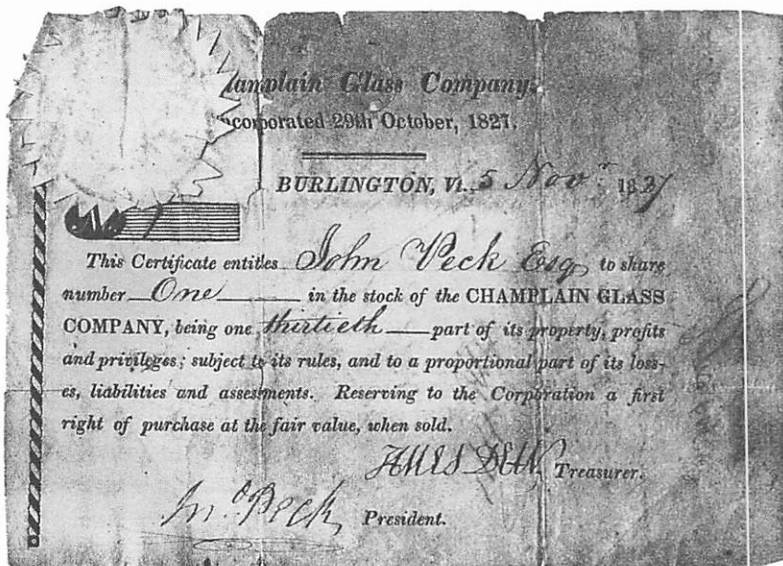 amplain Glass Company.
ncorporated 29th October, 1827.
BURLINGTON, Vt. 5 Novr 1827
No. 1
This Certificate entitles John Peck Esq to share
number One in the stock of the CHAMPLAIN GLASS
COMPANY, being one thirtieth part of its property, profits
and privileges; subject to its rules, and to a proportional part of its loss-
es, liabilities and assessments. Reserving to the Corporation a first
right of purchase at the fair value, when sold.
Treasurer.
Jno. Peck, President.